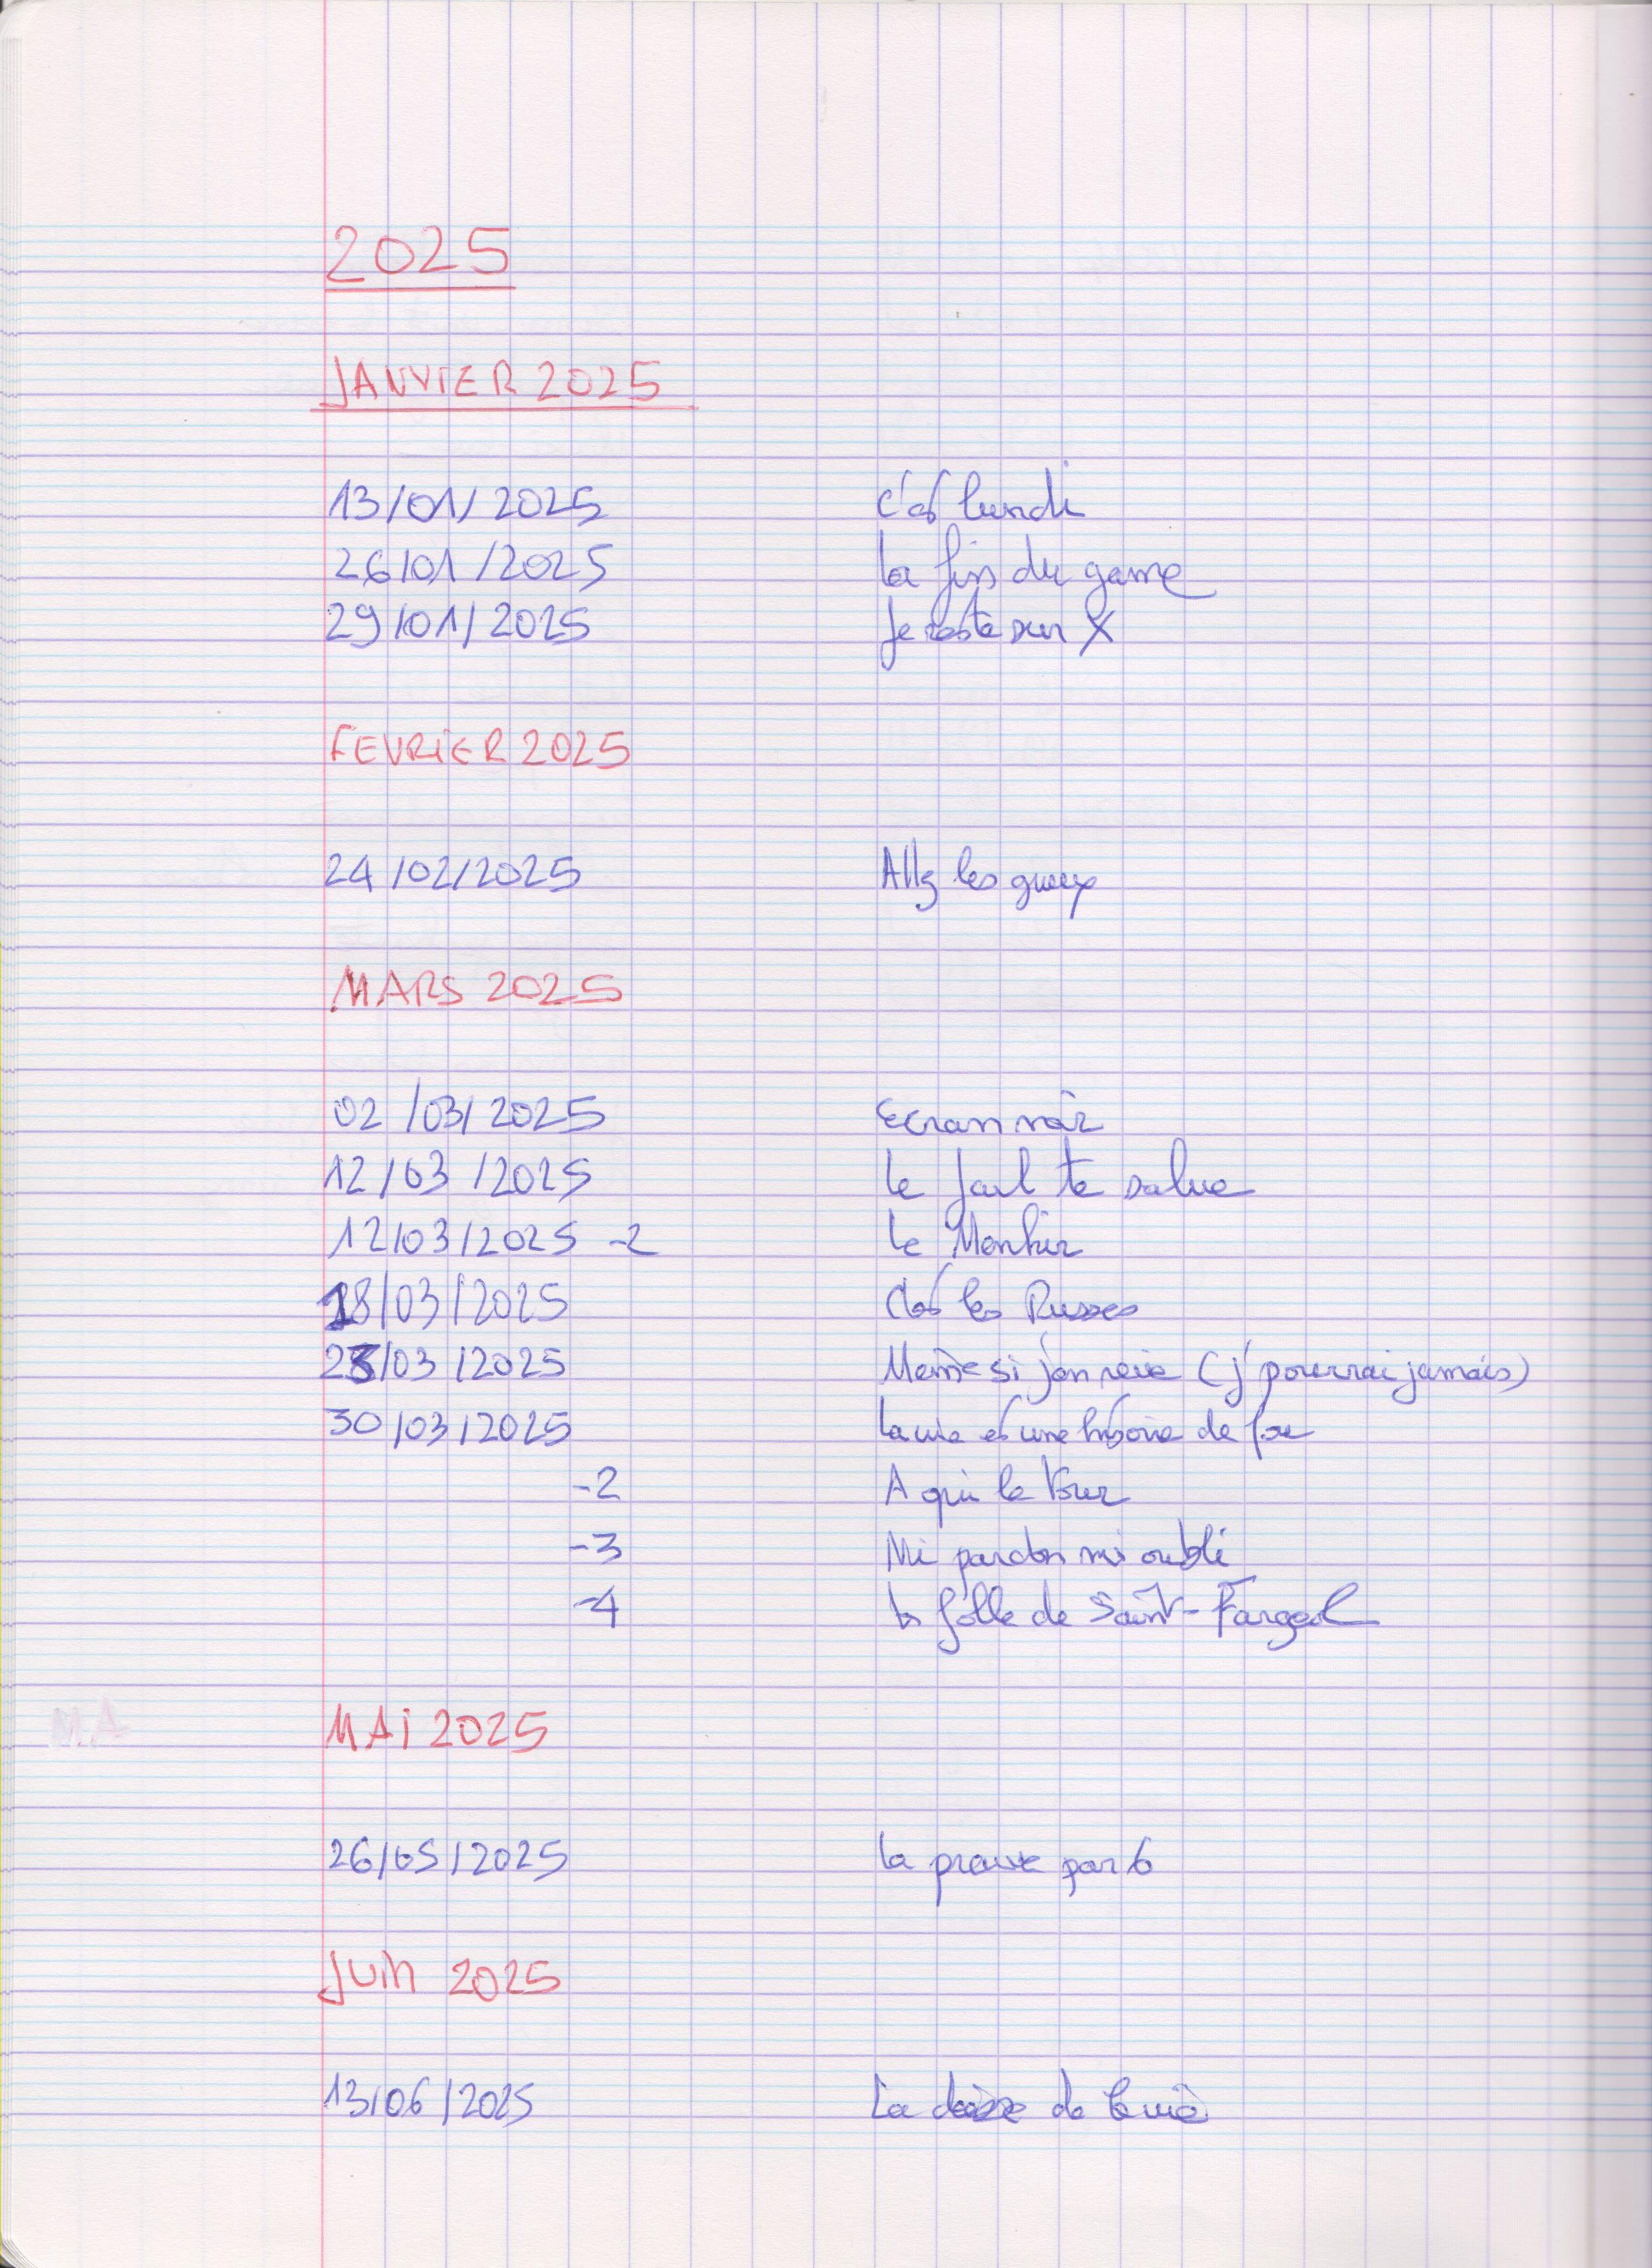 2025
JANVIER 2025
13/01/2025 C'est lundi
26/01/2025 La fin du game
29/01/2025 Je reste sur X
FEVRIER 2025
24/02/2025 Allez les gueux
MARS 2025
02/03/2025 Ecran noir
12/03/2025 Le te salue
12/03/2025 -2 Le Menhir
18/03/2025 C'est les Russes
/03/2025 Meme si j'en reve (j'pourrai jamais)
30/03/2025 La vie est une histoire de fou
-2 A qui le tour
-3 Ni pardon ni oubli
-4 La folle de Saint-Fargeau
MAi 2025
26/05/2025 La preuve par 6
Juin 2025
13/06/2025 La de la vie
MA